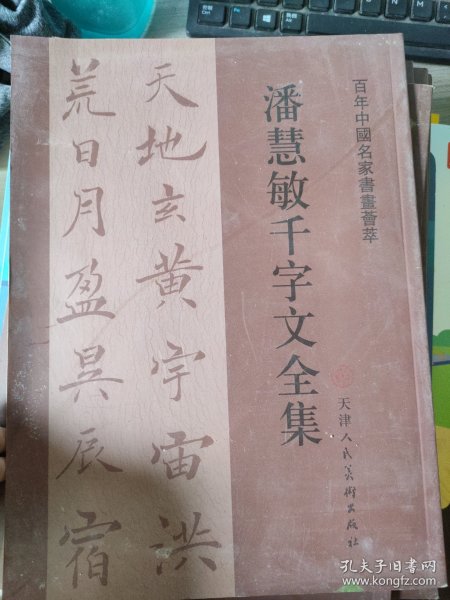 百年中國名家書畫薈萃
潘慧敏千字文全集
天津人民美術出版社
天地玄黄宇宙洪
荒日月盈昃辰宿
孔夫子旧书网
www.kongfz.com